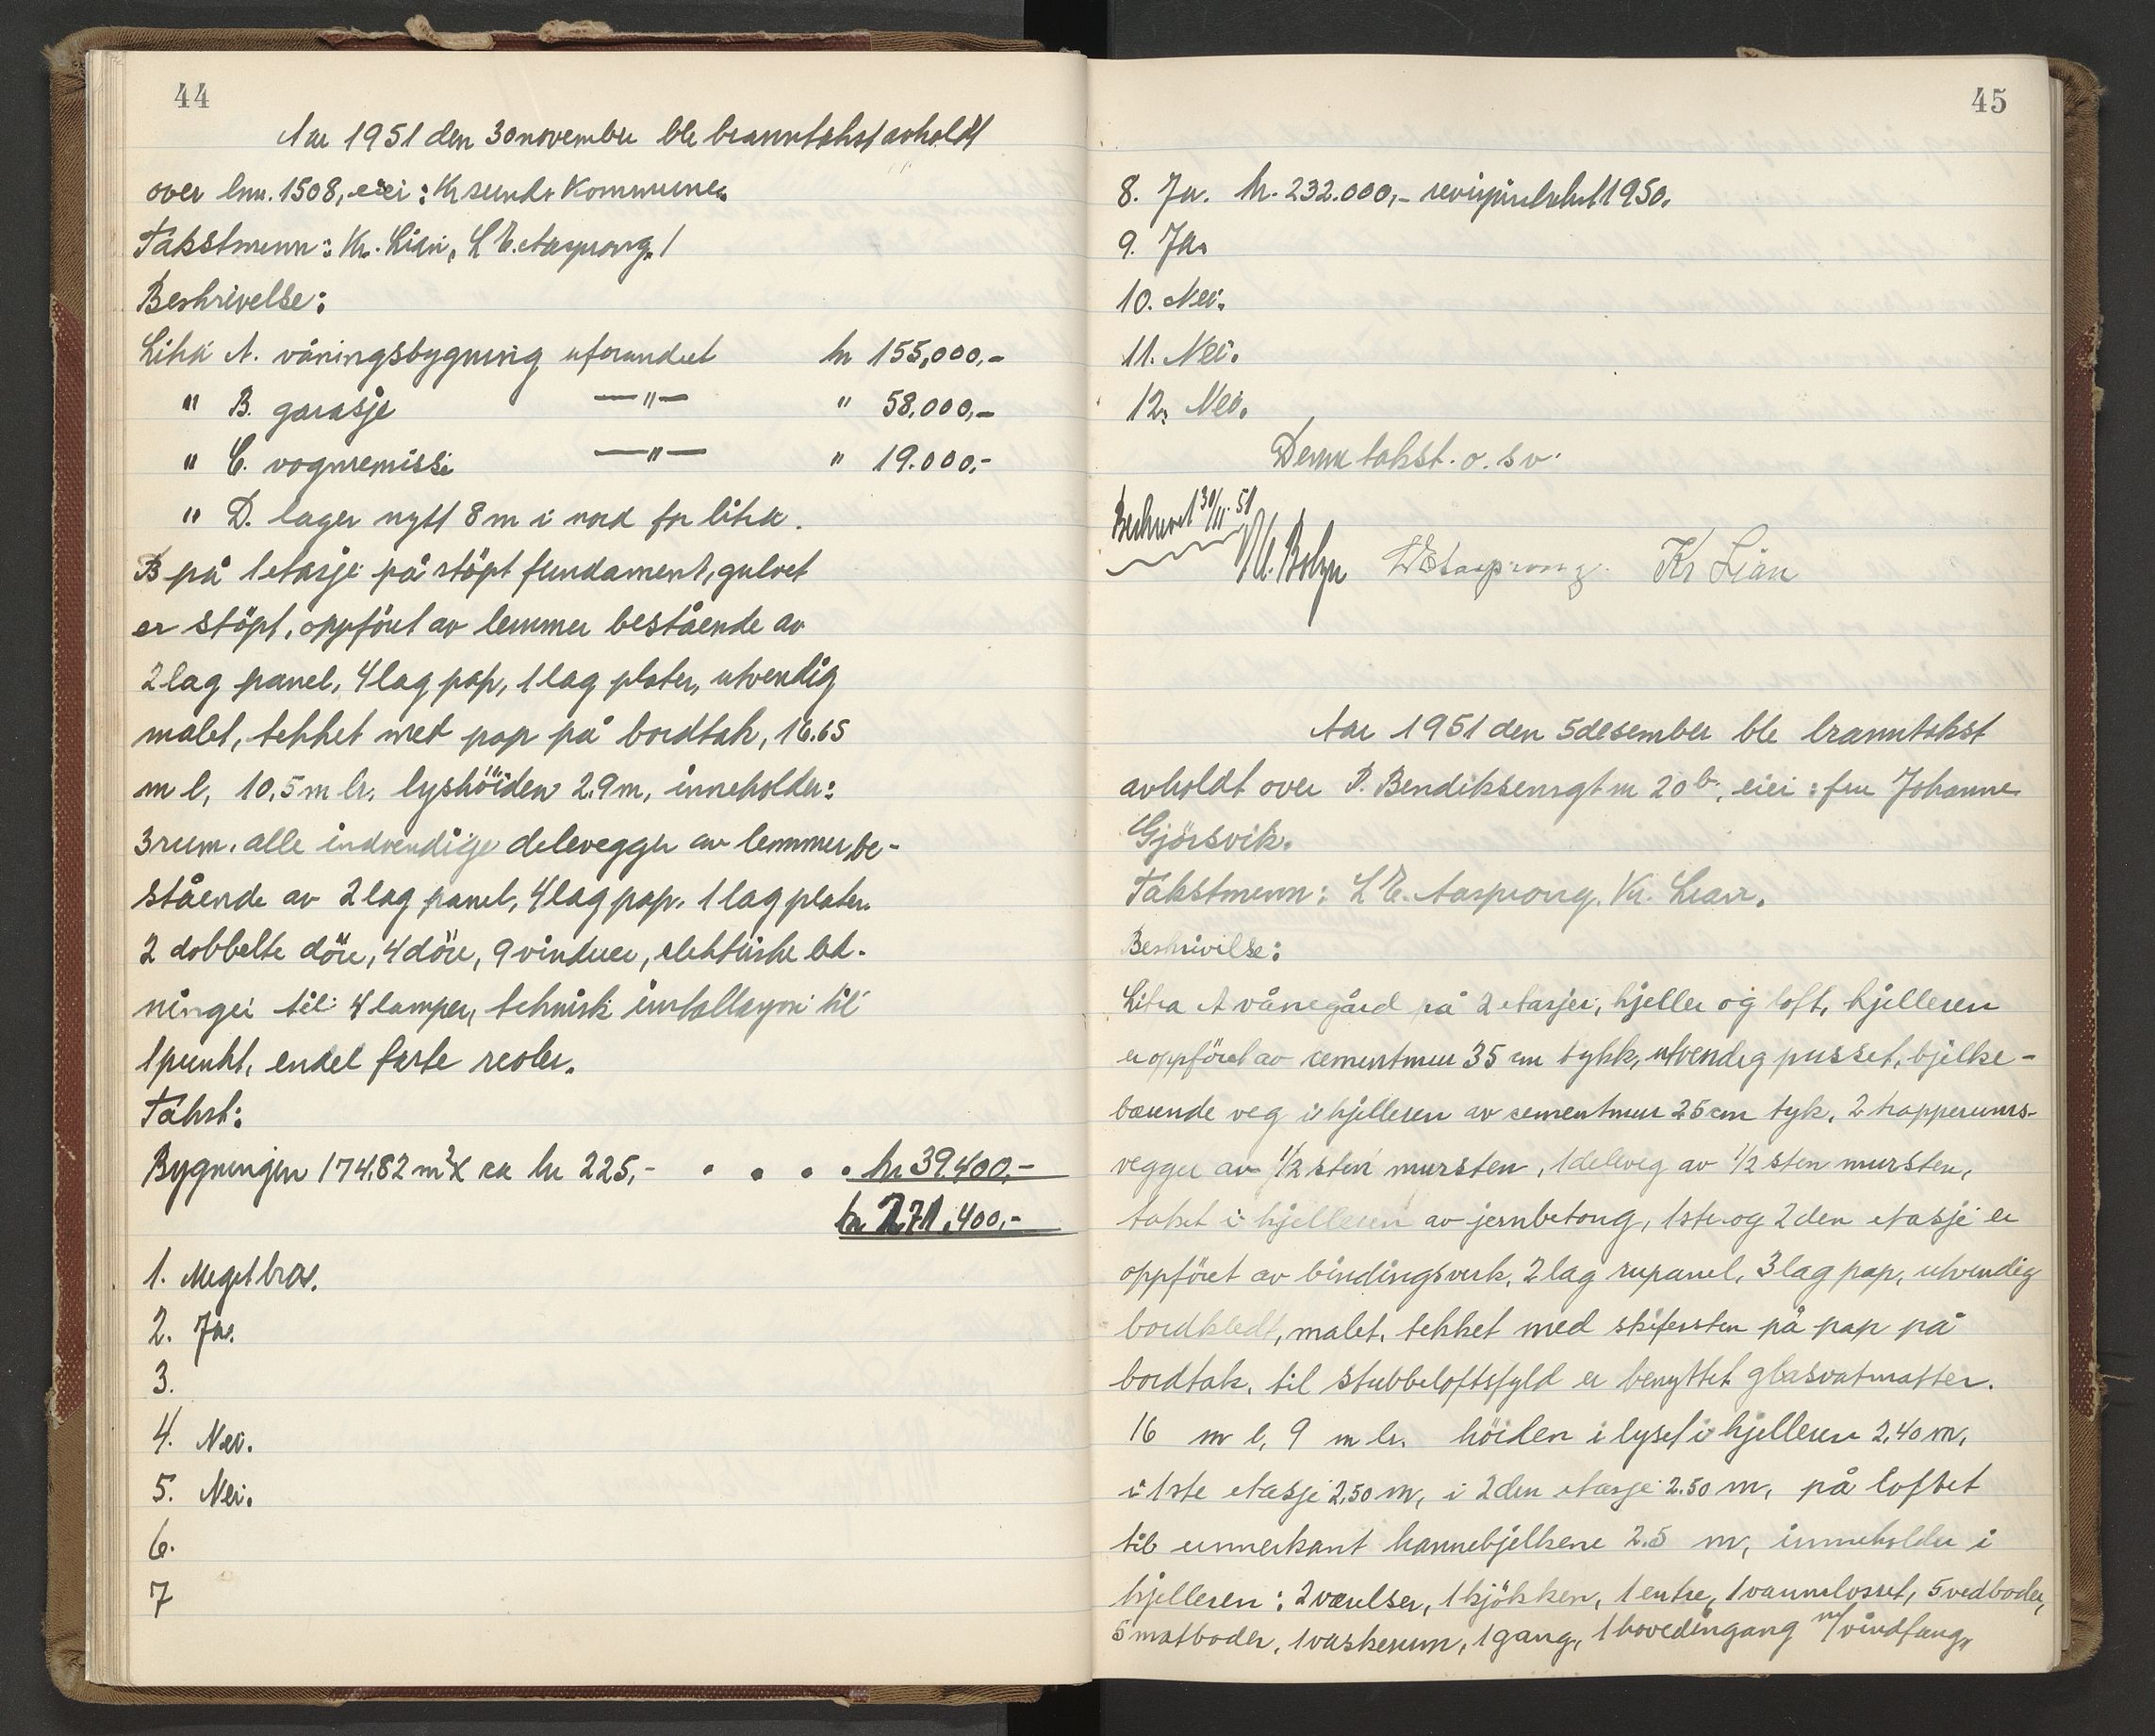 44
Aar 1951 den 30 november ble branntakst avholdt
over lnr. 1508, eier: Kr.sunds Kommune.
Takstmenn: Kr. Lian, L E. Aasprong.
Beskrivelse:
Litra A. våningsbygning uforandret kr 155,000,-
" B. garasje —"— " 58.000,-
" C. vognremisse —"— " 19.000,-
" D. lager nytt 8 m i nord for litra.
B på 1 etasje på støpt fundament, gulvet
er stöpt, oppföret av lemmer bestående av
2 lag panel, 4 lag pap, 1 lag plater, utvendig
malet, tekket med pap på bordtak, 16.65
m l, 10,5 m br. lyshöiden 2.9 m, inneholder:
3 rum. alle indvendige delevegger av lemmer be-
stående av 2 lag panel, 4 lag pap. 1 lag plater.
2 dobbelte döre, 4 döre, 9 vinduer, elektriske led-
ninger til 4 lamper, teknisk installasjon til
1 punkt, endel faste reoler.
Takst:
Bygningen 174.82 m² X ca kr 225,- . . . . kr 39.400,-
kr 271.400,-
1. Meget bra.
2. Ja.
3.
4. Nei.
5. Nei.
6.
7
45
8. Ja. kr. 232.000,- revisjonstakst 1950.
9. Ja.
10. Nei.
11. Nei.
12. Nei.
Denne takst. o. s v.
Beskrevet 30/11. 51
L E Aasprong. Kr Lian
Aar 1951 den 5 desember ble branntakst
avholdt over P. Bendiksensgt nr 20 b., eier: fru Johanne
Gjörsvik.
Takstmenn: L E. Aasprong, Kr. Lian.
Beskrivelse:
Litra A vånegård på 2 etasjer, kjeller og loft, kjelleren
er oppföret av cementmur 35 cm tykk, utvendig pusset, bjelke-
bærende veg i kjelleren av cementmur 25 cm tyk. 2 trapperums-
vegger av 1/2 sten mursten, 1 deleveg av 1/2 sten mursten,
taket i kjelleren av jernbetong, 1ste og 2den etasje er
oppföret av bindingsverk, 2 lag rupanel, 3 lag pap, utvendig
bordkledt, malet, tekket med skifersten på pap på
bordtak, til stubbeloftsfyld er benyttet glasvatmatter.
16 m l, 9 m br. höiden i lyset i kjelleren 2,40 m,
i 1ste etasje 2,50 m, i 2den etasje 2.50 m, på loftet
til unnerkant hannebjelkene 2.5 m, inneholder i
kjelleren: 2 værelser, 1 kjökken, 1 entre, 1 vannklosset, 5 vedboder,
5 matboder, 1 vaskerum, 1 gang, 1 hovedingang m/vindfang,